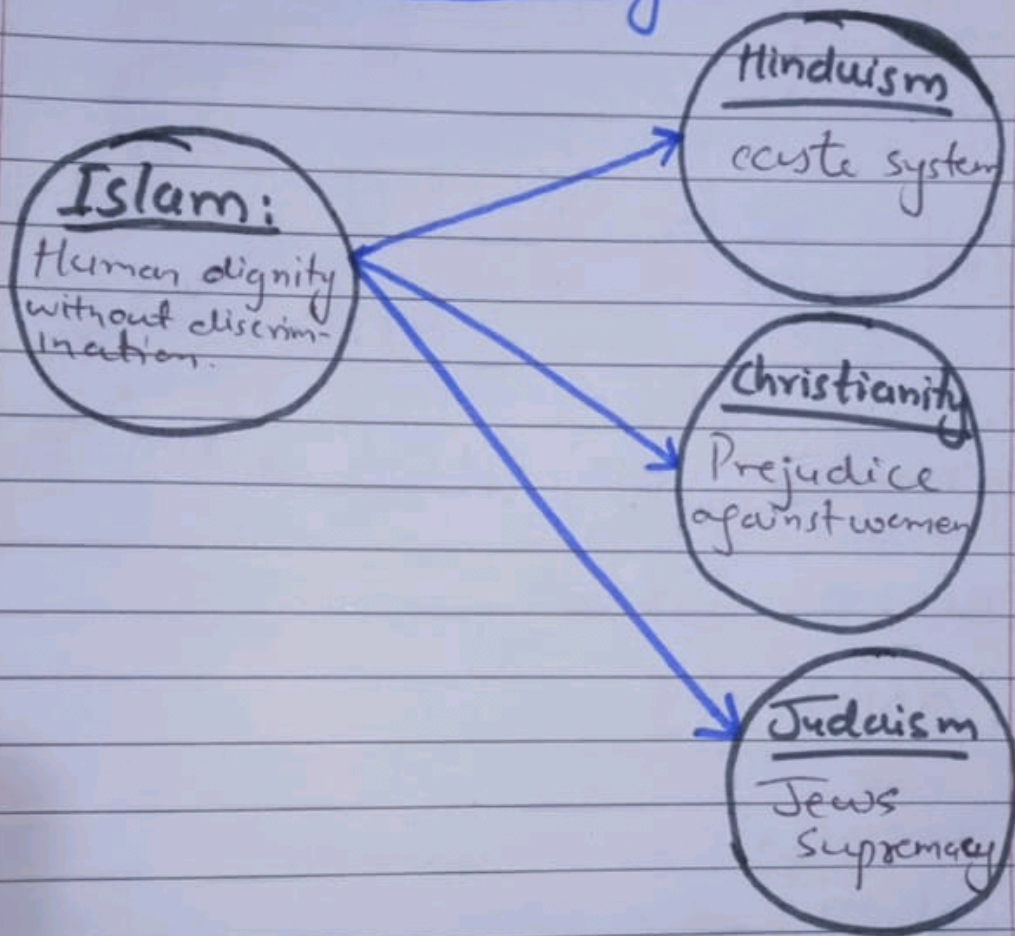 Islam:
Human dignity
without discrim-
ination.
Hinduism
caste system
Christianity
Prejudice
against women
Judaism
Jews
Supremacy